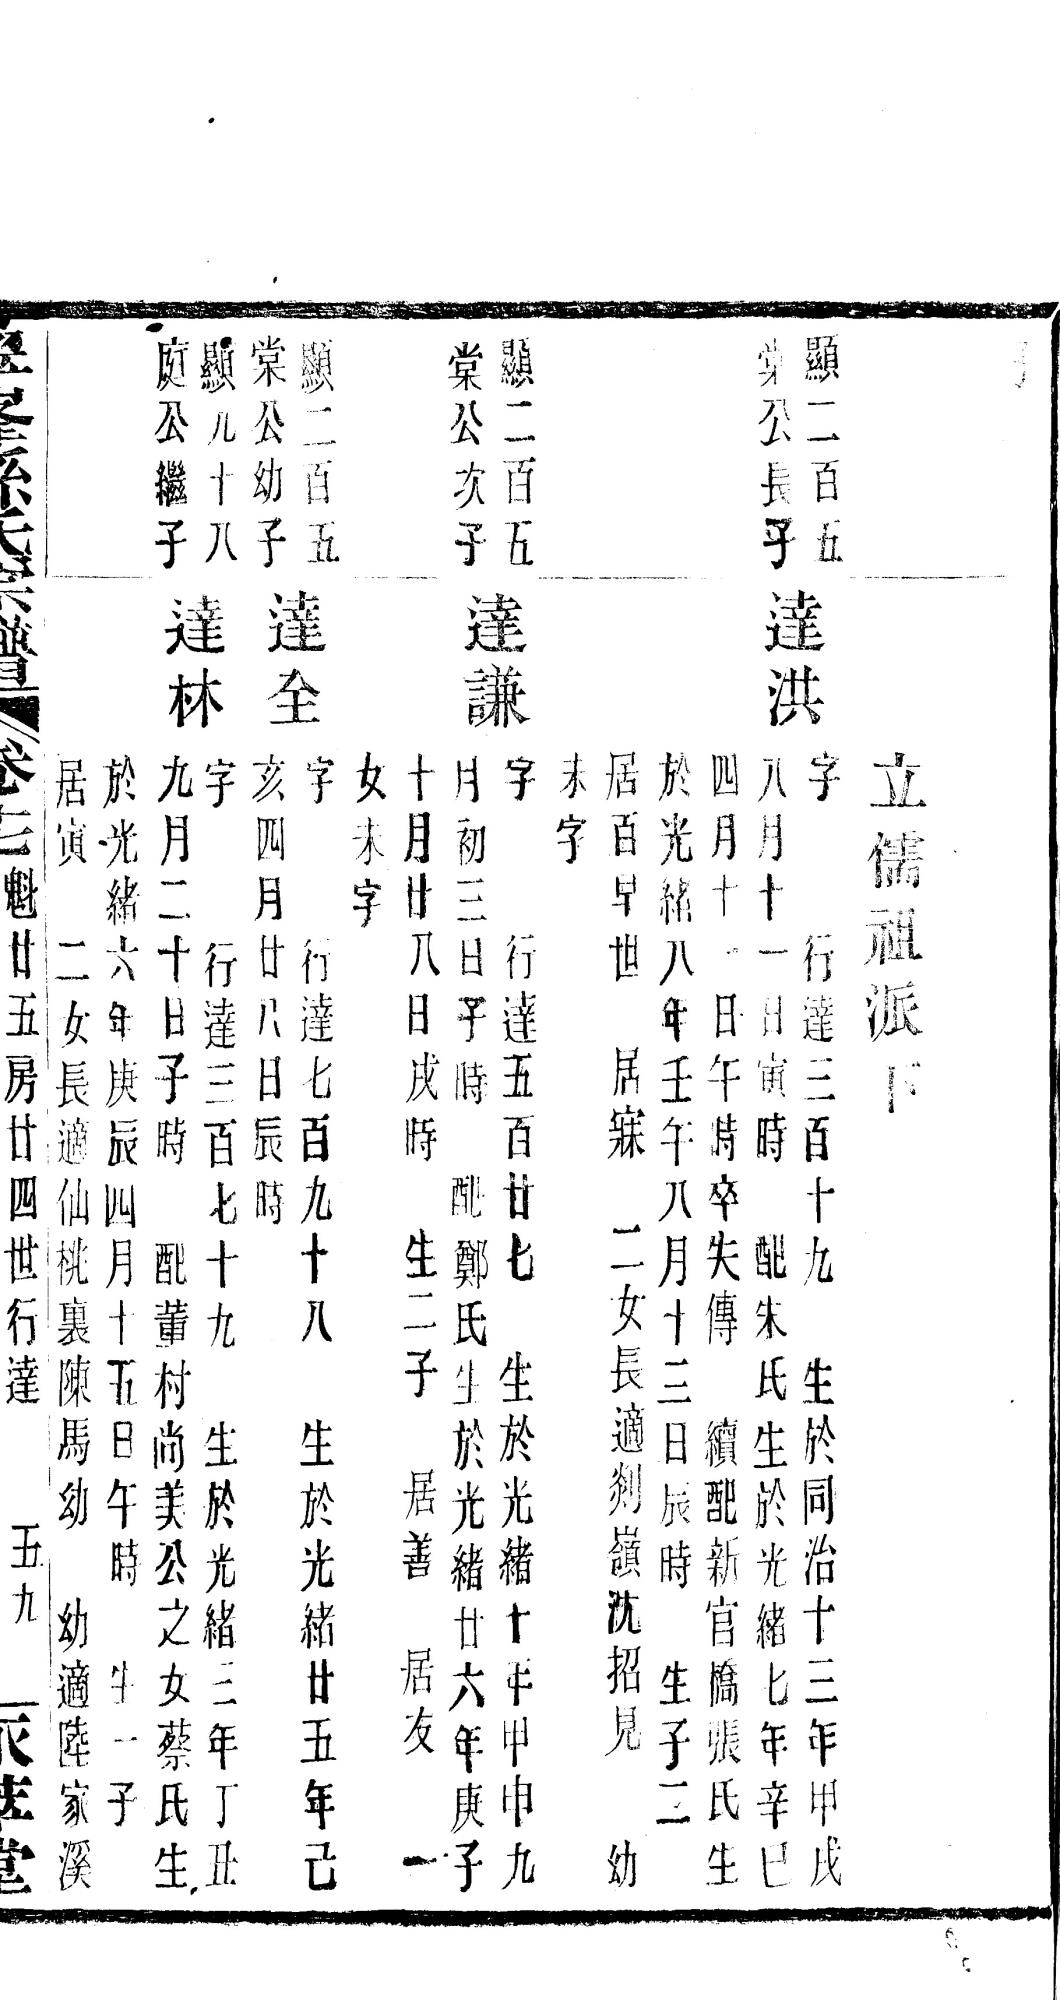 立儒祖派下
顯二百五
棠公長子
達洪
字　行達三百十九　生於同治十三年甲戌
八月十一日寅時　配朱氏生於光緒七年辛巳
四月十一日午時卒失傳　續配新官橋張氏生
於光緒八年壬午八月十三日辰時　生子二
居百早世　居寐　二女長適剡嶺沈招見　幼
未字
顯二百五
棠公次子
達謙
字　行達五百廿七　生於光緒十年甲申九
月初三日子時　配鄭氏生於光緒廿六年庚子
十月廿八日戌時　生二子　居善　居友　一
女未字
顯二百五
棠公幼子
達全
字　行達七百九十八　生於光緒廿五年己
亥四月廿八日辰時
顯九十八
庭公繼子
達林
字　行達三百七十九　生於光緒三年丁丑
九月二十日子時　配董村尚美公之女蔡氏生
於光緒六年庚辰四月十五日午時　生一子
居寅　二女長適仙桃裏陳馬幼　幼適陸家溪
孫氏宗譜　卷十七魁廿五房廿四世行達　五九　堂